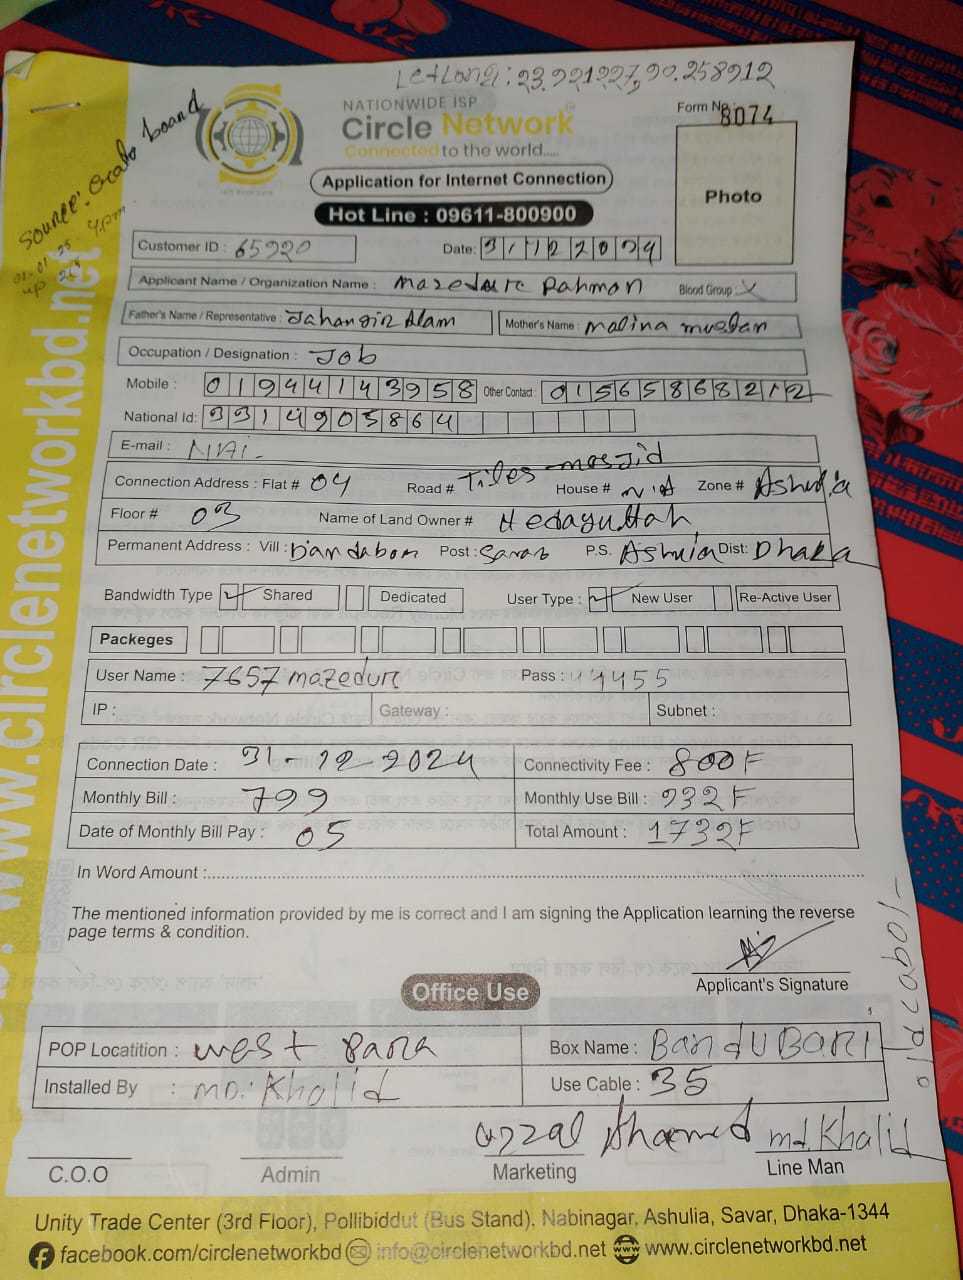 Let Long: 23.921227, 90.258912
NATIONWIDE ISP
Circle Network
Connected to the world.....
Form No 8074
Photo
Application for Internet Connection
Hot Line : 09611-800900
Source: board
4pm
01-01-25
up
www.circlenetworkbd.net
Customer ID : 65920
Date: 31122024
Applicant Name / Organization Name : Mazedure Rahman Blood Group : X
Father's Name / Representative : Jahangir Alam Mother's Name : Malina
Occupation / Designation : Job
Mobile : 01944143958 Other Contact : 01565868212
National Id: 3314905864
E-mail : N/Ai.
Connection Address : Flat # 04 Road # Tiles mosjid House # N/A Zone # Ashulia
Floor # 03 Name of Land Owner # Hedayullah
Permanent Address : Vill : Post : P.S. Ashulia Dist: Dhaka
Bandwidth Type ✓ Shared Dedicated User Type : ✓ New User Re-Active User
Packeges
User Name : 7657mazedure Pass : 44455
IP : Gateway : Subnet :
Connection Date : 31-12-2024 Connectivity Fee : 800F
Monthly Bill : 799 Monthly Use Bill : 932F
Date of Monthly Bill Pay : 05 Total Amount : 1732F
In Word Amount :
The mentioned information provided by me is correct and I am signing the Application learning the reverse
page terms & condition.
Applicant's Signature
Office Use
POP Locatition : west para Box Name : Bandu Bari
Installed By : MD. Khalid Use Cable : 35
uzzal Ahamed md. Khalid
C.O.O Admin Marketing Line Man
Unity Trade Center (3rd Floor), Pollibiddut (Bus Stand), Nabinagar, Ashulia, Savar, Dhaka-1344
facebook.com/circlenetworkbd info@circlenetworkbd.net www.circlenetworkbd.net